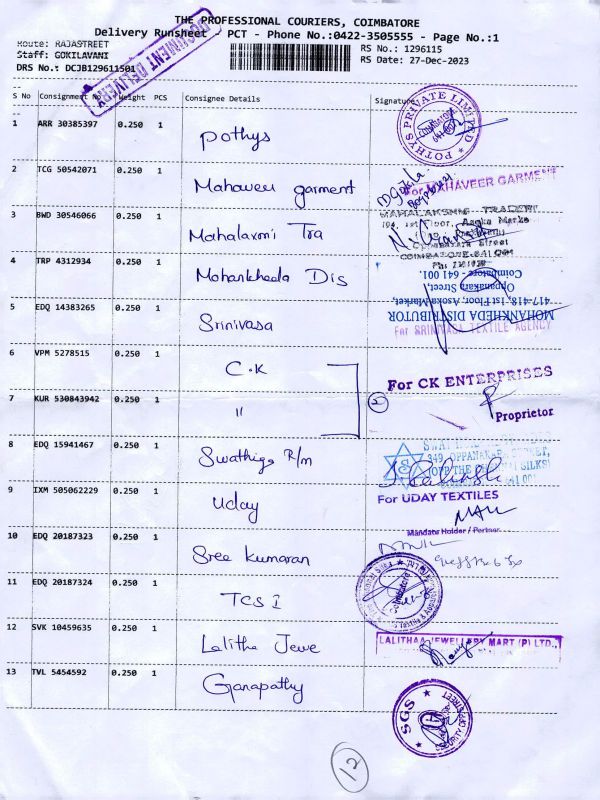 THE PROFESSIONAL COURIERS, COIMBATORE
Delivery Runsheet PCT - Phone No.:0422-3505555 - Page No.:1
Route: RAJASTREET RS No.: 1296115
Staff: GOKILAVANI RS Date: 27-Dec-2023
DRS No.: DCJB129611501
DOCUMENT DELIVERY
S No Consignment No Weight PCS Consignee Details Signature
1 ARR 30385397 0.250 1 Pothys
POTHYS PRIVATE LIMITED
COIMBATORE
2 TCG 50542071 0.250 1 Mahaveer garment
For MAHAVEER GARMENT
3 BWD 30546066 0.250 1 Mahalaxmi Tra
MAHALAKSHMI TRADERS
4 TRP 4312934 0.250 1 Mohankheda Dis
MOHANKHEDA DISTRIBUTOR
417-418, 1st Floor, Asoka Market,
Oppanakara Street,
Coimbatore - 641 001.
5 EDQ 14383265 0.250 1 Srinivasa
For SRINIVASA TEXTILE AGENCY
6 VPM 5278515 0.250 1 C.K
For CK ENTERPRISES
7 KUR 530843942 0.250 1 "
2
Proprietor
8 EDQ 15941467 0.250 1 Swathiga R/m
349, OPPANAKARA STREET,
9 IXM 505062229 0.250 1 Uday
For UDAY TEXTILES
Mandate Holder / Partner
10 EDQ 20187323 0.250 1 Sree Kumaran
11 EDQ 20187324 0.250 1 TCS I
12 SVK 10459635 0.250 1 Lalitha Jewe
LALITHAA JEWELLERY MART (P) LTD.,
13 TVL 5454592 0.250 1 Ganapathy
SGS
12